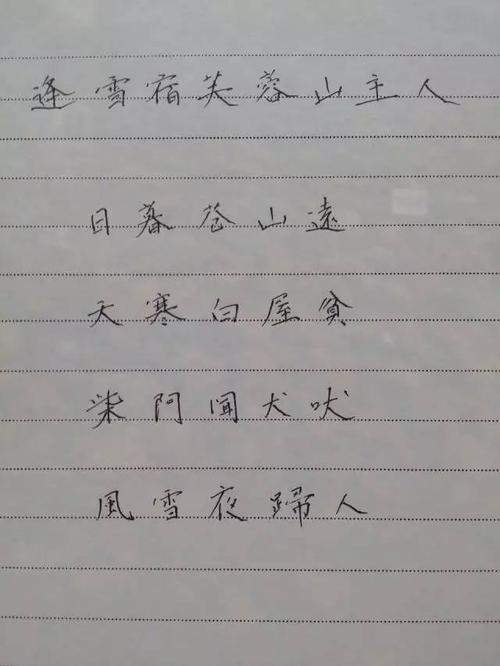 逢雪宿芙蓉山主人
日暮苍山遠
天寒白屋貧
柴门闻犬吠
風雪夜歸人